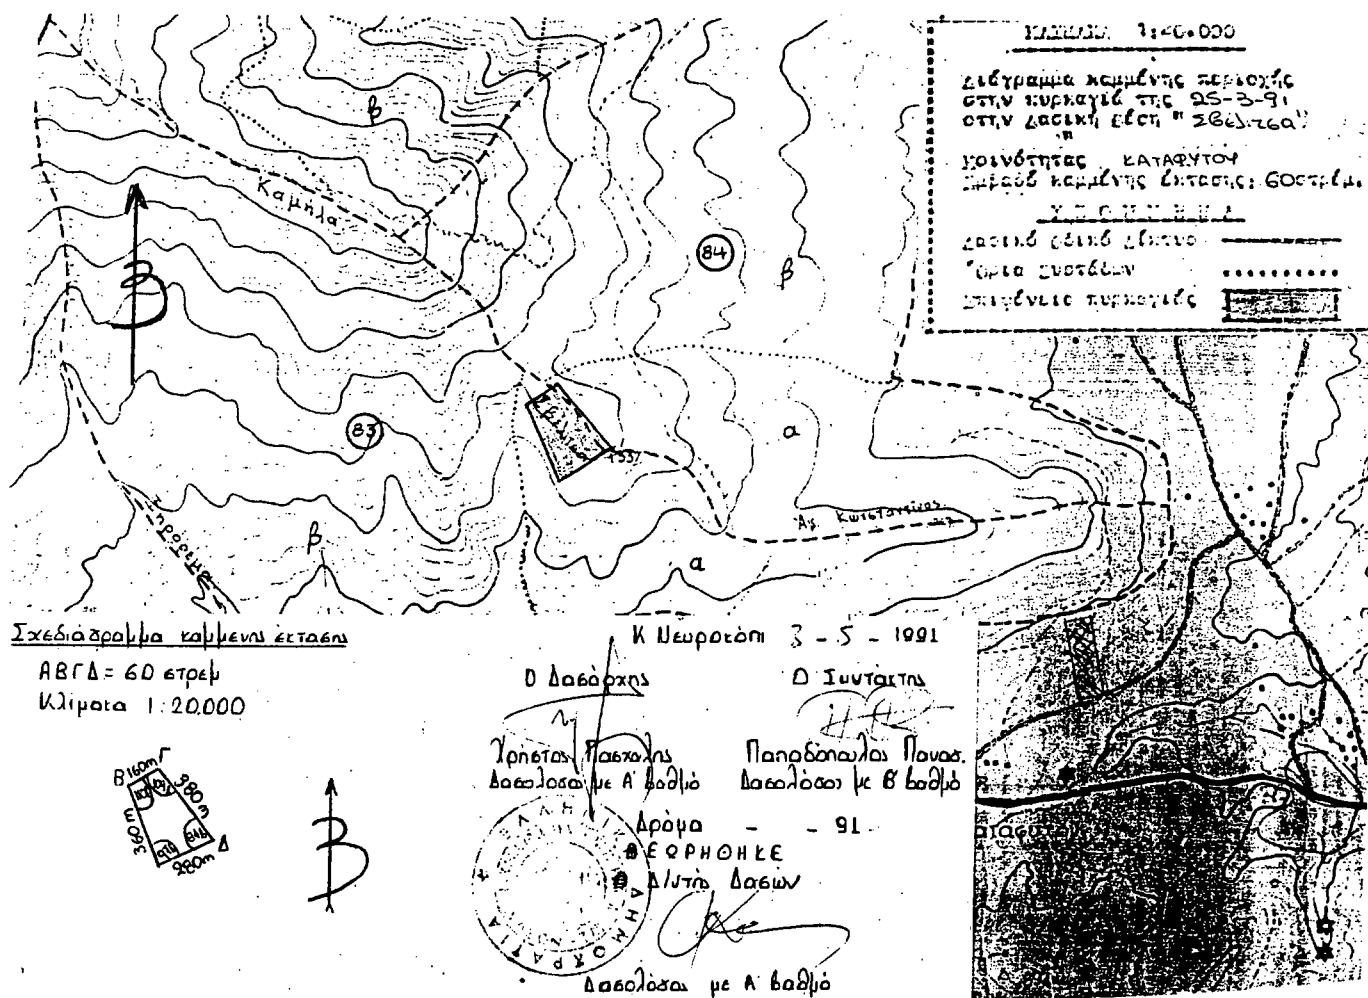 ΚΛΙΜΑΚΑ 1:40.000
Διάγραμμα καμμένης περιοχής
στην πυρκαγιά της 25-3-91
στην Δασική θέση " Σβελιτσα"
"
κοινότητας ΚΑΤΑΦΥΤΟΥ
Εμβαδό καμμένης έκτασης: 60στρέμ.
Υ Π Ο Μ Ν Η Μ Α
Δασικό οδικό δίκτυο
Όρια συστάδων
Επιφάνεια πυρκαγιάς
β
Καμήλα
84
β
Β
83
α
Αγ. Κωνσταντίνος
β
α
Σχεδιάγραμμα καμμενης έκτασης
ΑΒΓΔ = 60 στρεμ
Κλίματα 1:20.000
Β 160m Γ
380m
360m
Δ
280m
Β
Κ Νευροκόπι 3 - 5 - 1991
Ο Δασάρχης
Ο Συντάκτης
Χρηστος Πασχαλης
Παπαδόπουλος Παναγ.
Δασολόγος με Α' βαθμό
Δασολόγος με Β' βαθμό
Δράμα - - 91
ΘΕΩΡΗΘΗΚΕ
Ο Δ/ντής Δασών
ΕΛΛΗΝΙΚΗ ΔΗΜΟΚΡΑΤΙΑ
Δασολόγος με Α' βαθμό